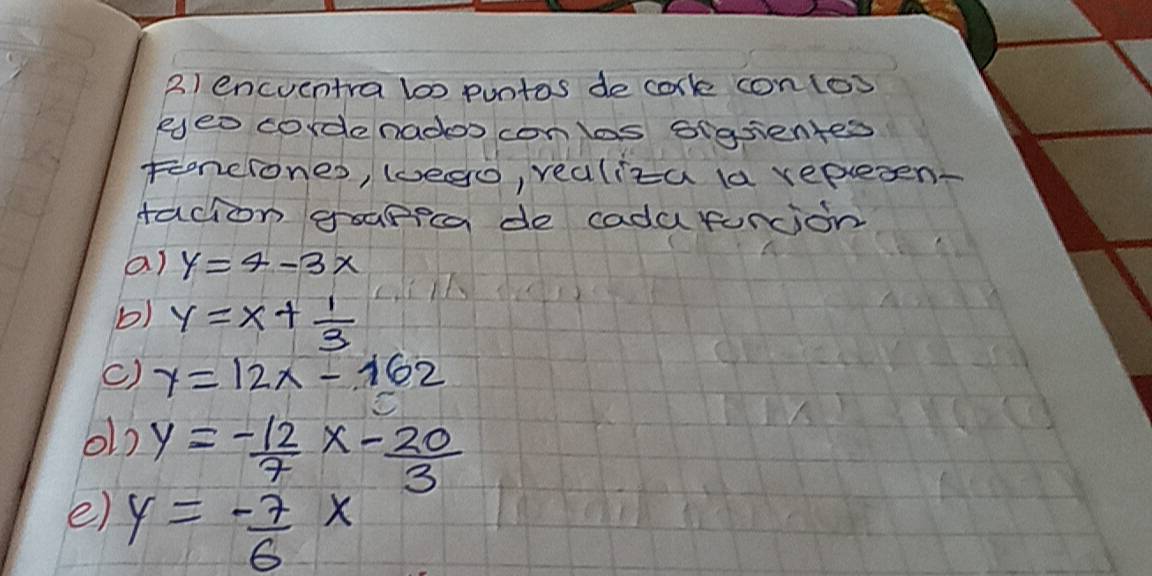 2) encuentra los puntos de corte con los
ejes cordenados con las siguientes
Funciones, luego, realiza la represen-
tación grafica de cada función
a) y = 4 - 3x
b) y = x + 1/3
c) y = 12x - 162
d) y = -12/7 x - 20/3
e) y = -7/6 x